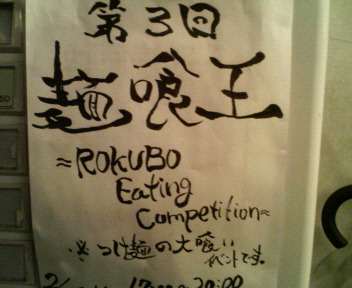 第3回
麺喰王
≈ROKUBO
Eating
Competition≈
※つけ麺の大喰い
イベントです。